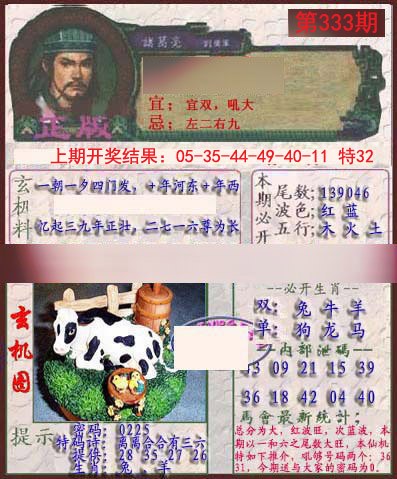 第333期
諸葛亮 劉備軍
宜：宜双，吼大
忌：左二右九
正版
上期开奖结果：05-35-44-49-40-11 特32
玄机料
一朝一夕四门发，十年河东十年西
忆起三九年正壮，二七一六尊为长
本期必开
尾数：139046
波色：红 蓝
五行：木 火 土
玄机图
必开生肖
双：兔 牛 羊
单：狗 龙 马
内部泄码
43 09 21 15 39
36 18 42 04 40
馬會最新統计：
总分为大，红波旺，次蓝波，本
期以一和六之尾数大旺，本仙机
特如下推介，吼够号码两个：36
31，今期送与大家的密码为0.
提示
密码：0225
特码诗：离离合合有三六
提供：28 35 27 26
生肖：兔、羊